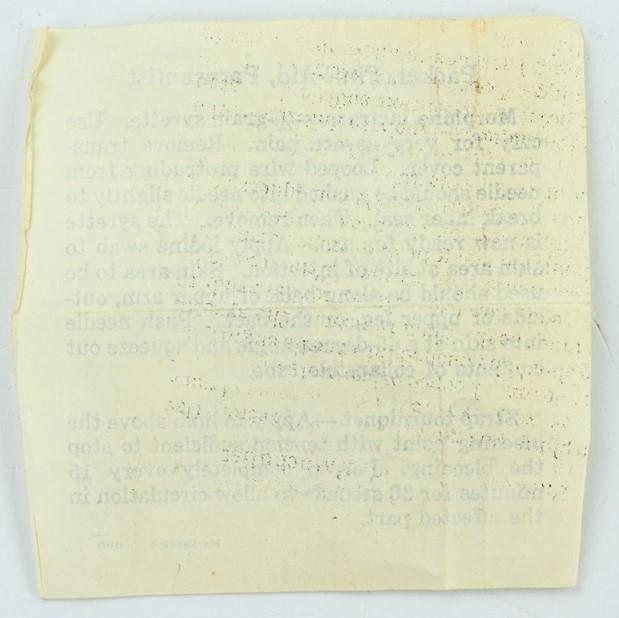 Packet, First-Aid, Parachutist
Morphine tartrate ½-grain syrette. Use
only for very severe pain. Remove trans-
parent cover. Looped wire protruding from
needle should be pushed into needle slightly to
break inner seal. Then remove. The syrette
is now ready for use. Apply iodine swab to
skin area at site of injection. Skin area to be
used should be along back of upper arm, out-
side of upper leg, or the back. Push needle
into skin at a angle and squeeze out
contents of collapsible tube.
Strap tourniquet—Apply to limb above the
bleeding point with tension sufficient to stop
the bleeding. completely every 15
minutes for 30 seconds to allow circulation in
the affected part.